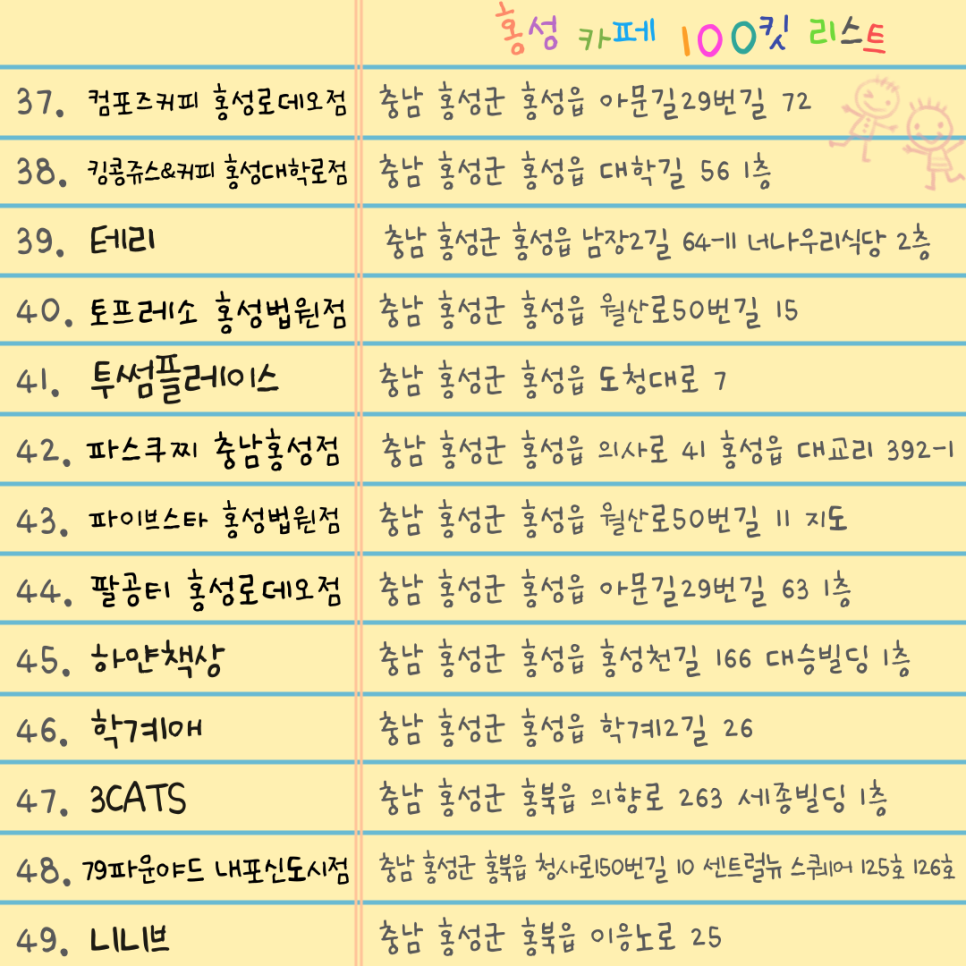 홍성 카페 100킷 리스트
37. 컴포즈커피 홍성로데오점 충남 홍성군 홍성읍 아문길29번길 72
38. 킹콩쥬스&커피 홍성대학로점 충남 홍성군 홍성읍 대학길 56 1층
39. 테리 충남 홍성군 홍성읍 남장2길 64-11 너나우리식당 2층
40. 토프레소 홍성법원점 충남 홍성군 홍성읍 월산로50번길 15
41. 투썸플레이스 충남 홍성군 홍성읍 도청대로 7
42. 파스쿠찌 충남홍성점 충남 홍성군 홍성읍 의사로 41 홍성읍 대교리 392-1
43. 파이브스타 홍성법원점 충남 홍성군 홍성읍 월산로50번길 11 지도
44. 팔공티 홍성로데오점 충남 홍성군 홍성읍 아문길29번길 63 1층
45. 하얀책상 충남 홍성군 홍성읍 홍성천길 166 대승빌딩 1층
46. 학계애 충남 홍성군 홍성읍 학계2길 26
47. 3CATS 충남 홍성군 홍북읍 의향로 263 세종빌딩 1층
48. 79파운야드 내포신도시점 충남 홍성군 홍북읍 청사로150번길 10 센트럴뉴 스퀘어 125호 126호
49. 니니브 충남 홍성군 홍북읍 이응노로 25